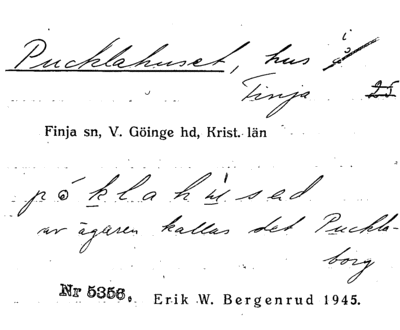 Pucklahuset, hus i
Finja 25
Finja sn, V. Göinge hd, Krist. län
av ägaren kallas det Puckla-
borg
Nr 5356. Erik W. Bergenrud 1945.